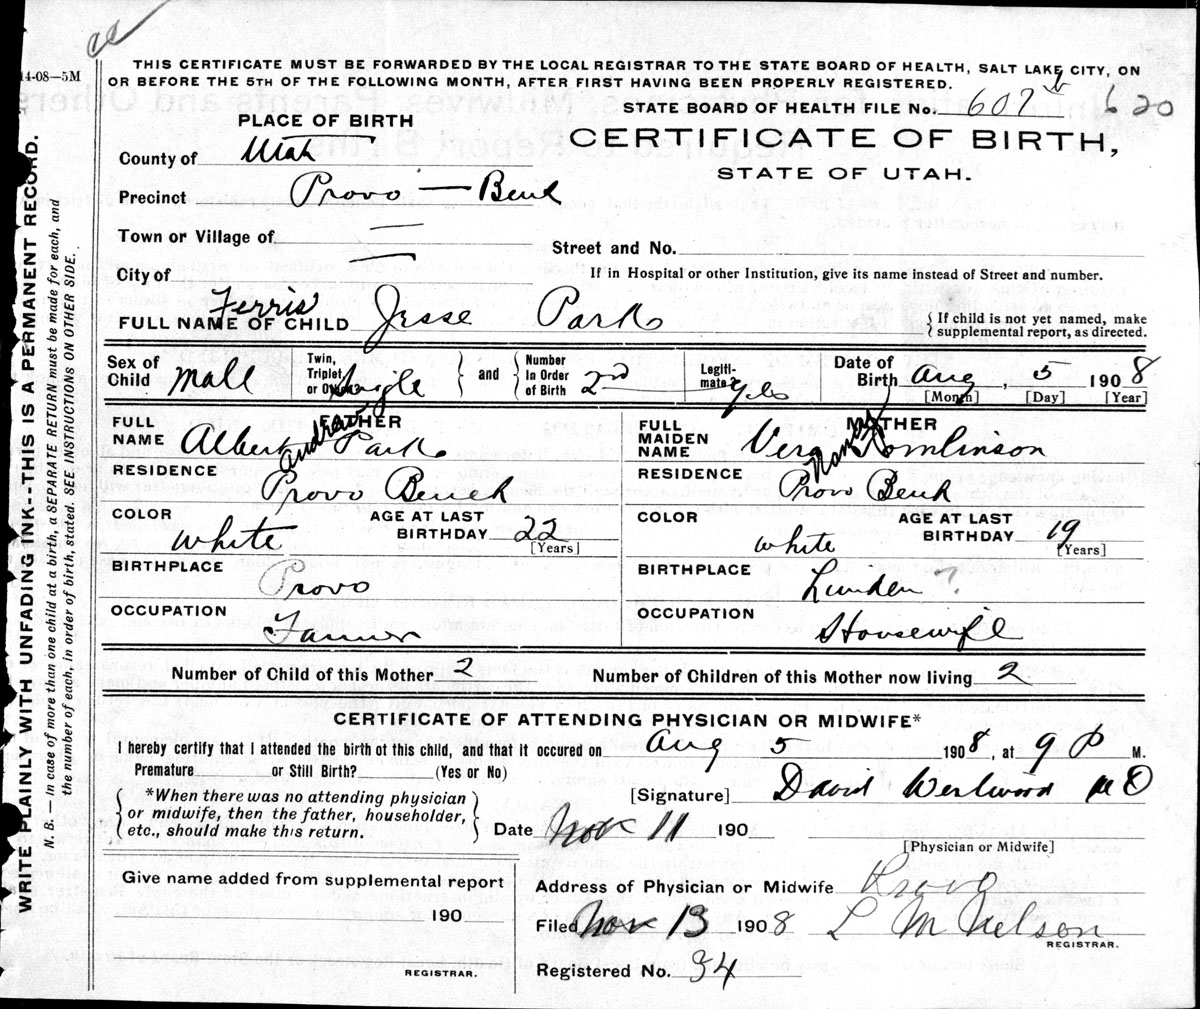 14-08—5M
THIS CERTIFICATE MUST BE FORWARDED BY THE LOCAL REGISTRAR TO THE STATE BOARD OF HEALTH, SALT LAKE CITY, ON
OR BEFORE THE 5TH OF THE FOLLOWING MONTH, AFTER FIRST HAVING BEEN PROPERLY REGISTERED.
STATE BOARD OF HEALTH FILE No. 607 620
PLACE OF BIRTH
CERTIFICATE OF BIRTH,
STATE OF UTAH.
County of Utah
Precinct Provo — Bench
Town or Village of —
Street and No.
City of —
If in Hospital or other Institution, give its name instead of Street and number.
FULL NAME OF CHILD Ferris Jesse Park
{ If child is not yet named, make
supplemental report, as directed.
Sex of Child Male
Twin, Triplet, or Other? Single
and
Number In Order of Birth 2nd
Legiti-mate? Yes
Date of Birth Aug, 5 1908
[Month] [Day] [Year]
FATHER
FULL NAME Albert Andrew Park
RESIDENCE Provo Bench
COLOR White
AGE AT LAST BIRTHDAY 22
[Years]
BIRTHPLACE Provo
OCCUPATION Farmer
MOTHER
FULL MAIDEN NAME Vera Nancy Tomlinson
RESIDENCE Provo Bench
COLOR White
AGE AT LAST BIRTHDAY 19
[Years]
BIRTHPLACE Lunden ?
OCCUPATION Housewife
Number of Child of this Mother 2
Number of Children of this Mother now living 2
CERTIFICATE OF ATTENDING PHYSICIAN OR MIDWIFE*
I hereby certify that I attended the birth of this child, and that it occured on Aug 5 1908, at 9 P M.
Premature or Still Birth? (Yes or No)
[Signature] David Westwood MD
*When there was no attending physician
or midwife, then the father, householder,
etc., should make this return.
Date Nov 11 190
[Physician or Midwife]
Give name added from supplemental report
190
REGISTRAR.
Address of Physician or Midwife Provo
Filed Nov 13 1908 L M Nelson
REGISTRAR.
Registered No. 34
WRITE PLAINLY WITH UNFADING INK--THIS IS A PERMANENT RECORD.
N. B. — In case of more than one child at a birth, a SEPARATE RETURN must be made for each, and
the number of each, in order of birth, stated. SEE INSTRUCTIONS ON OTHER SIDE.